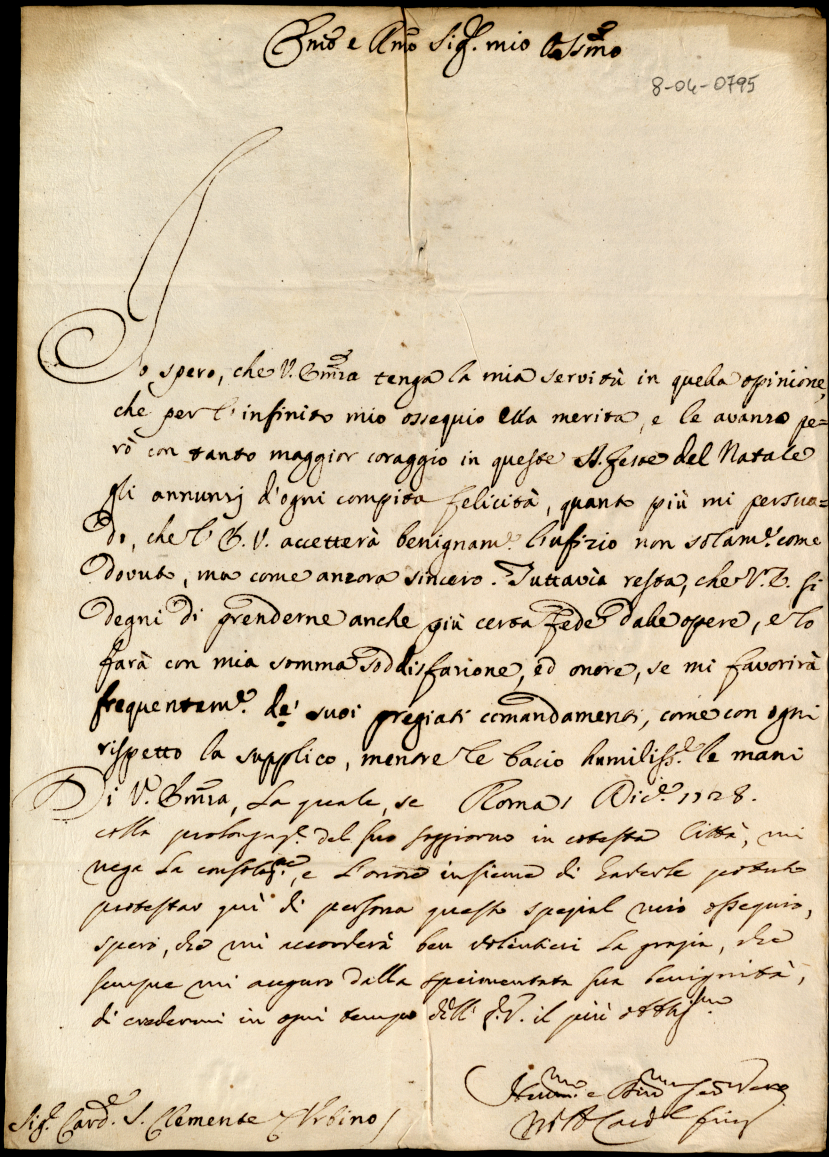 Emo e Rmo Sig.r mio Ossmo
8-04-0795
Io spero, che V. Emza tenga la mia servitù in quella opinione,
che per l'infinito mio ossequio ella merita, e le avanzo pe=
rò con tanto maggior coraggio in queste SS. Feste del Natale
gli annunzj d'ogni compita felicità, quanto più mi persua=
do, che l'E.V. accetterà benignam.e l'ufizio non solam.e come
dovuto, ma come anzora sincero. Tuttavia resta, che V.E. si
degni di prenderne anche più certa fede dalle opere, e lo
farà con mia somma soddisfazione, ed onore, se mi favorirà
frequentem.e de' suoi pregiati comandamenti, come con ogni
rispetto la supplico, mentre le bacio humiliss.e le mani
Di V. Emza, La quale, se Roma 1 Dic.e 1728.
colla prolongaz.e del suo soggiorno in cotesta Città, mi
nega la consolaz.ne, e l'onore insieme di haverle potuto
protestar quì di persona questo spezial mio ossequio,
spero, che mi accorderà ben volentieri la grazia, che
sempre mi auguro dalla sperimentata sua benignità,
di credermi in ogni tempo dell'E.V. il più
Humo e Servo
Card.l
Sig.r Card.e S. Clemente Urbino